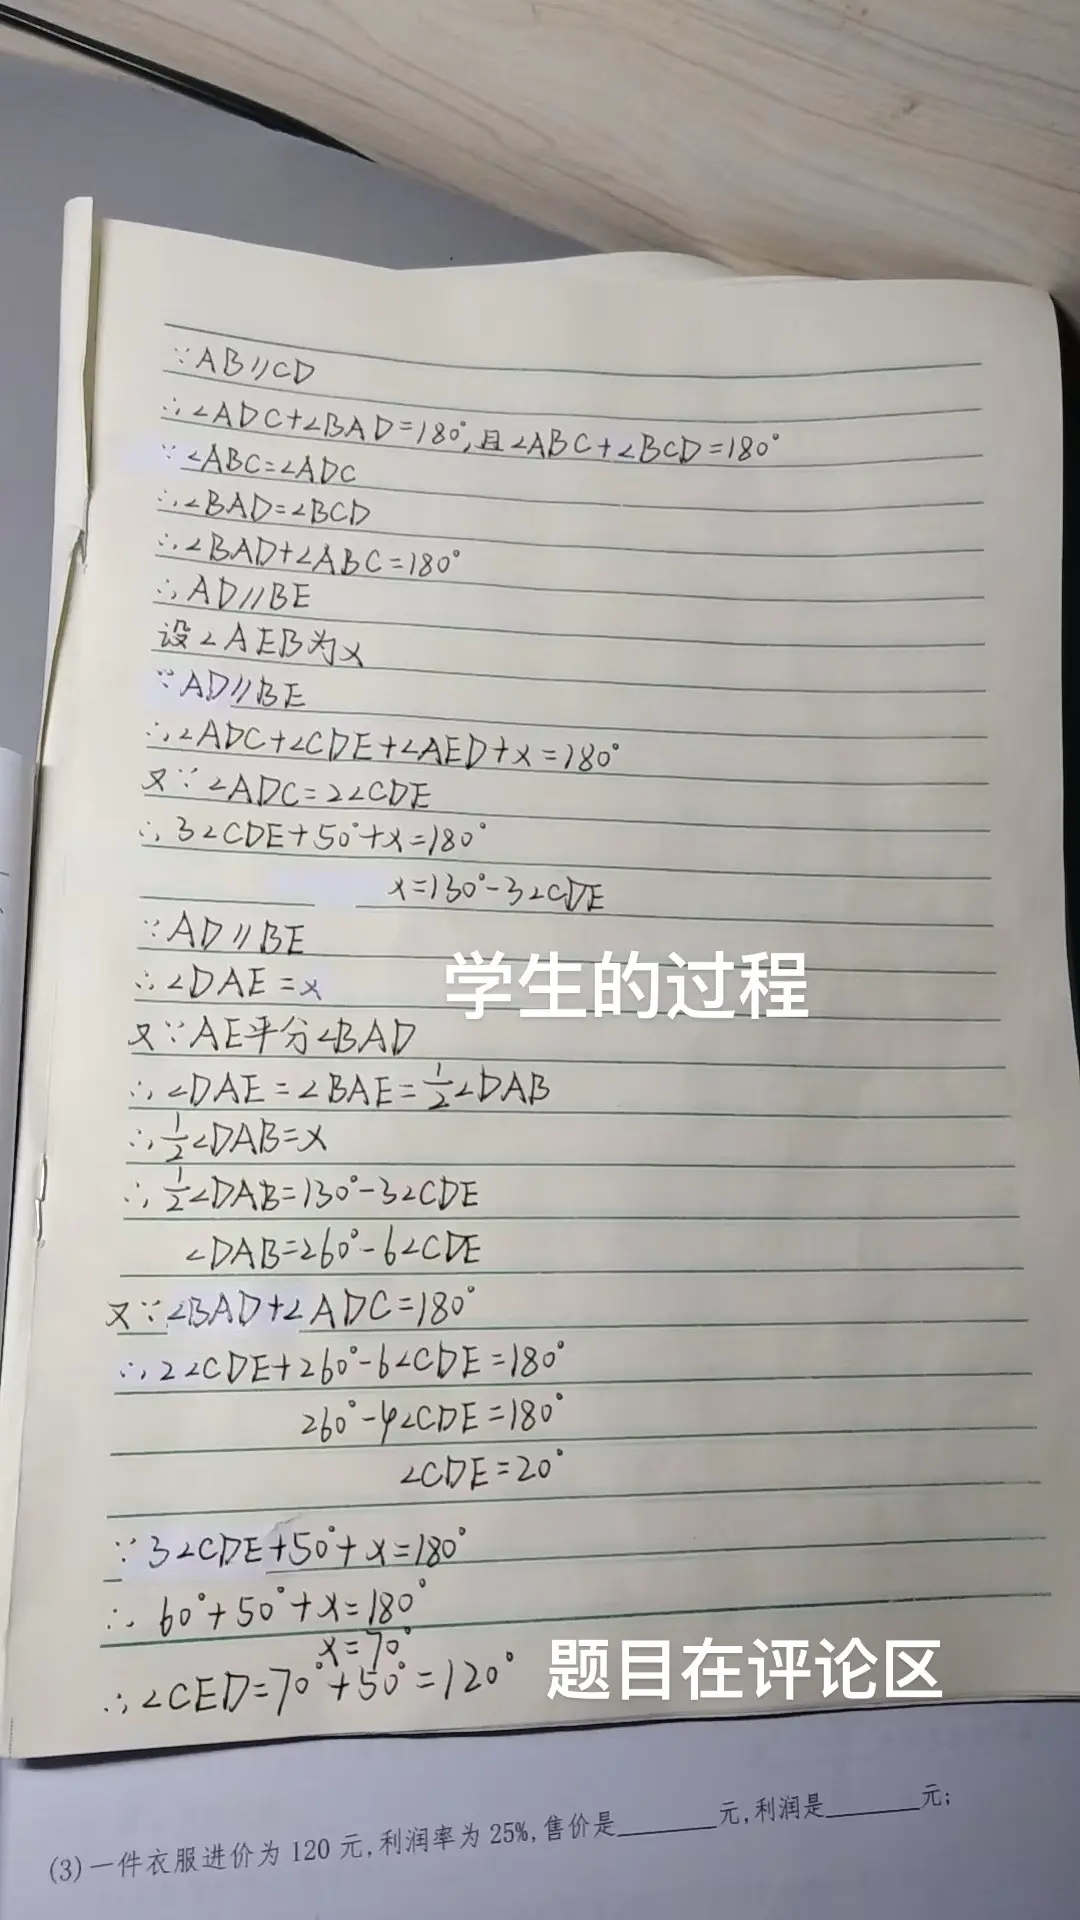 ∵AB//CD
∴∠ADC+∠BAD=180°,且∠ABC+∠BCD=180°
∵∠ABC=∠ADC
∴∠BAD=∠BCD
∴∠BAD+∠ABC=180°
∴AD//BE
设∠AEB为x
∵AD//BE
∴∠ADC+∠CDE+∠AED+x=180°
又∵∠ADC=2∠CDE
∴3∠CDE+50°+x=180°
x=130°-3∠CDE
∵AD//BE
∴∠DAE=x
学生的过程
又∵AE平分∠BAD
∴∠DAE=∠BAE=1/2∠DAB
∴1/2∠DAB=x
∴1/2∠DAB=130°-3∠CDE
∠DAB=260°-6∠CDE
又∵∠BAD+∠ADC=180°
∴2∠CDE+260°-6∠CDE=180°
260°-4∠CDE=180°
∠CDE=20°
∵3∠CDE+50°+x=180°
∴60°+50°+x=180°
x=70°
∴∠CED=70°+50°=120°
题目在评论区
(3)一件衣服进价为120元,利润率为25%,售价是______元,利润是______元;